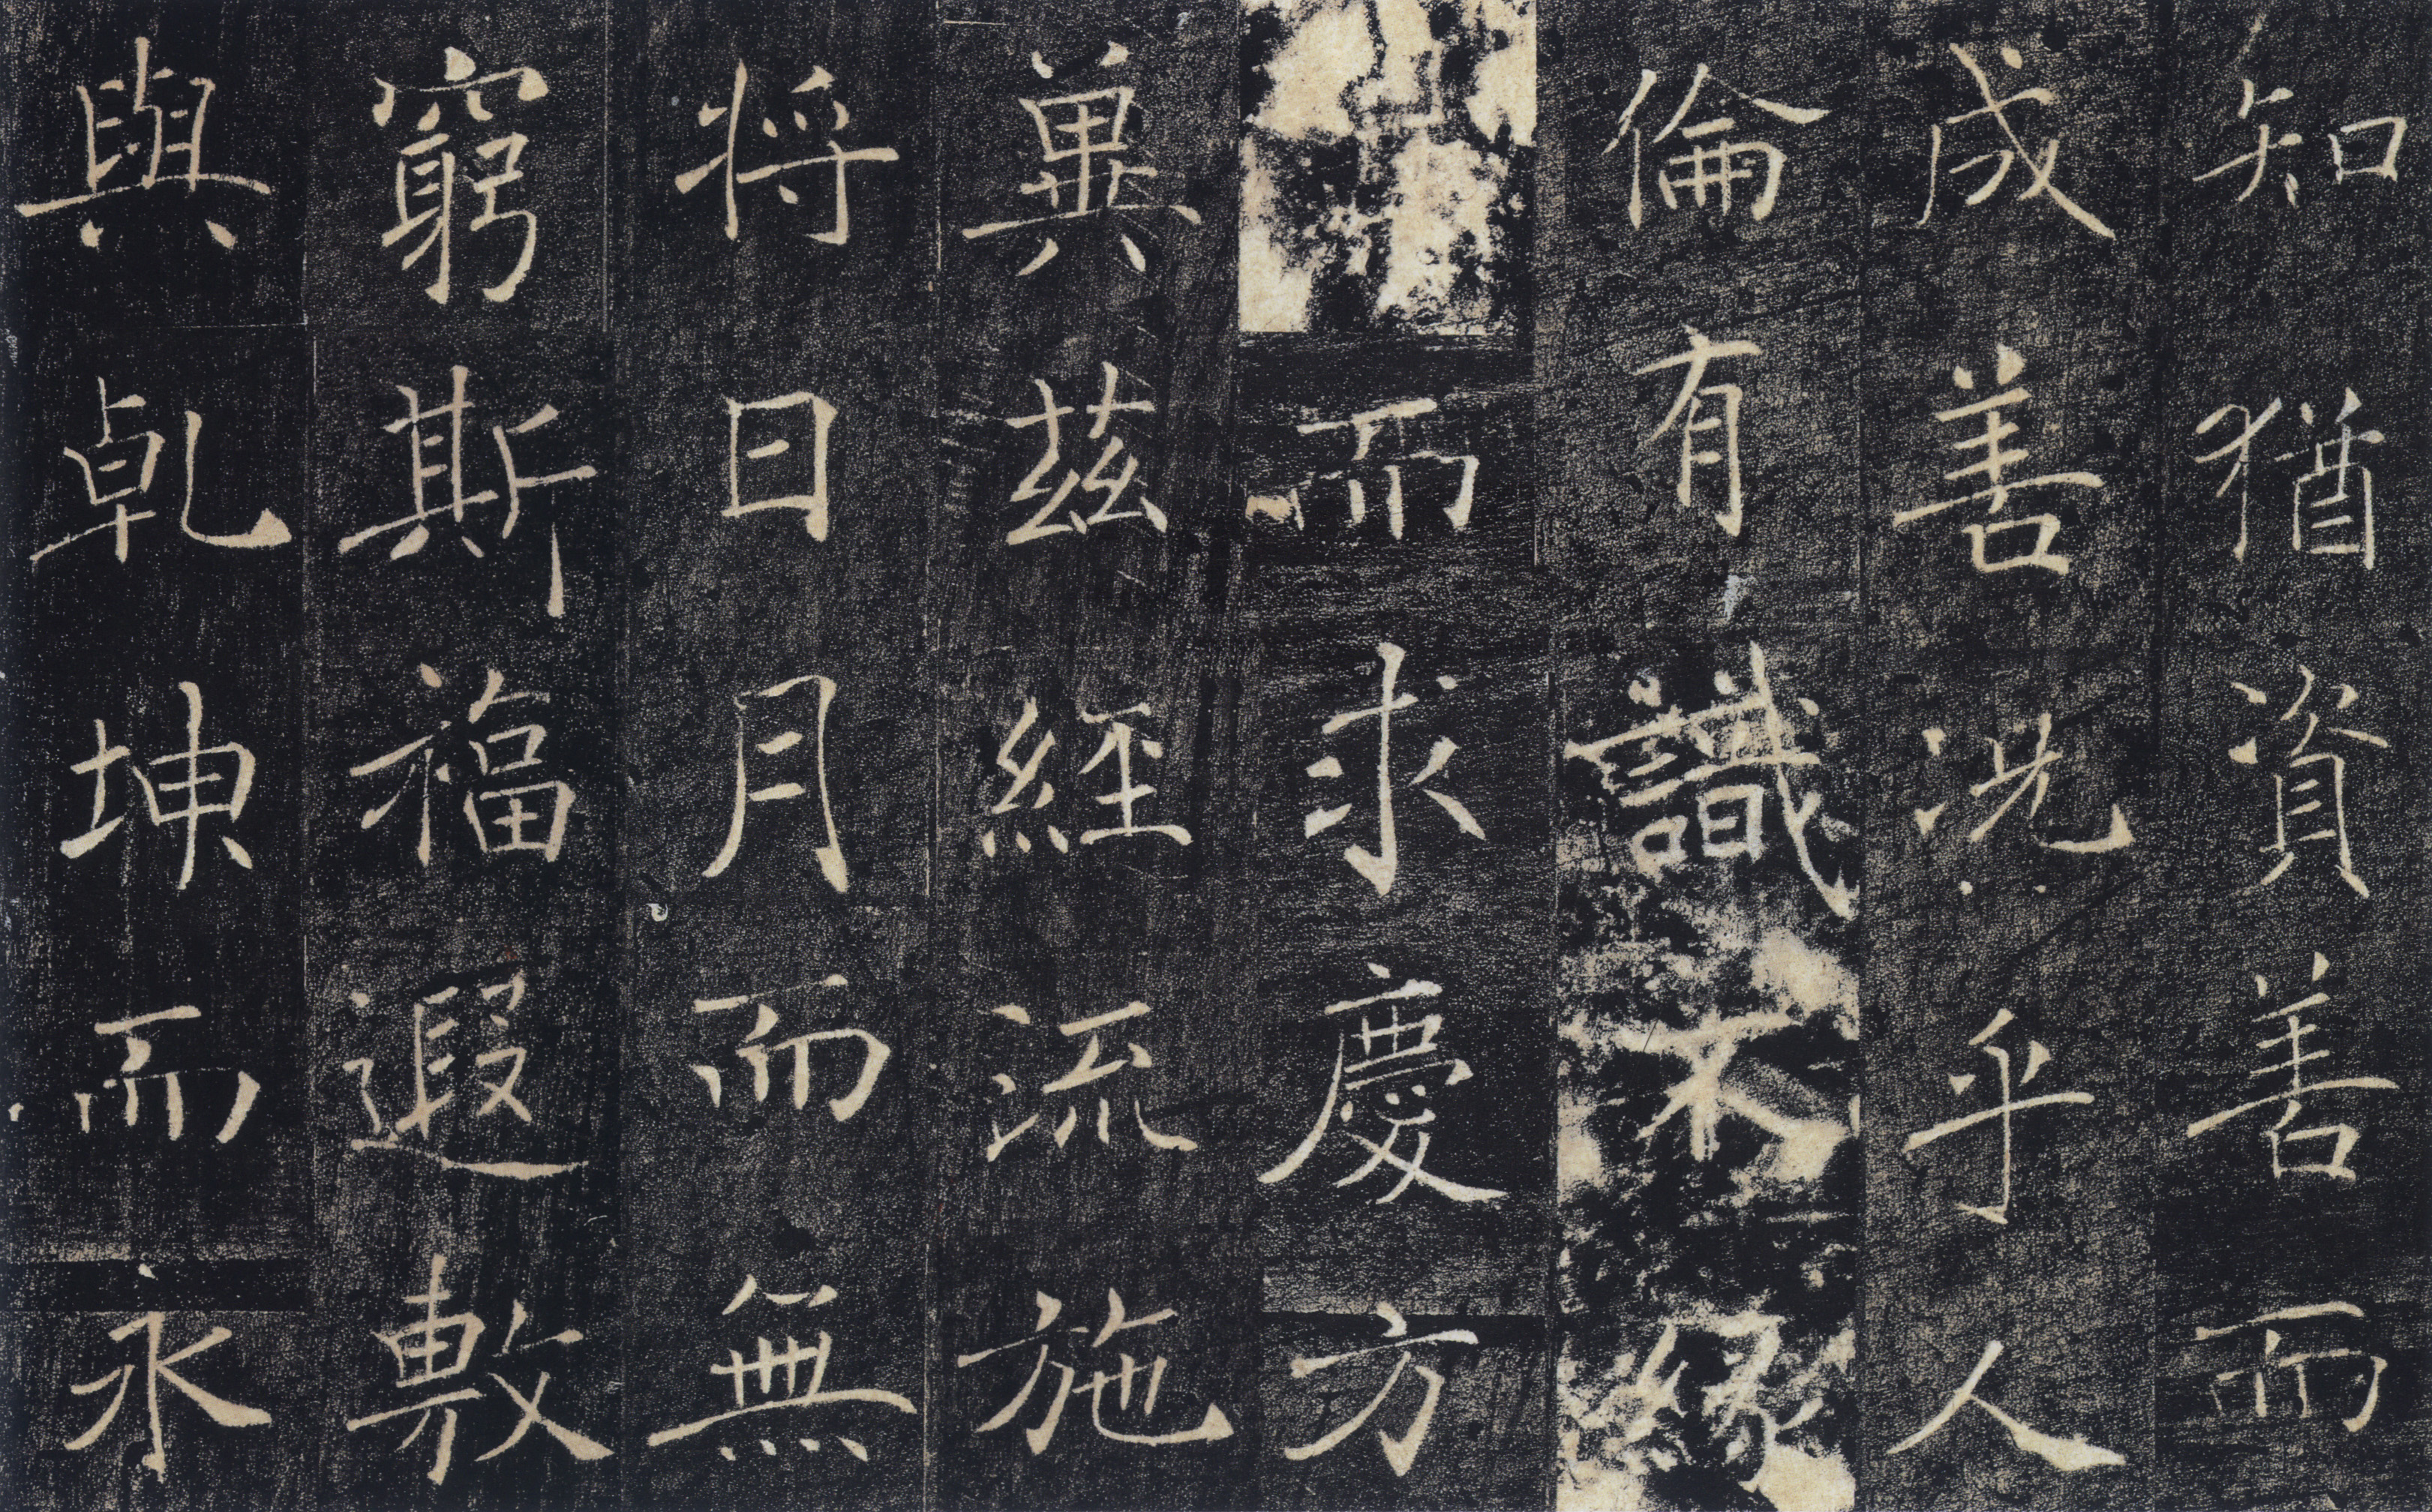 知猶資善而
成善況乎人
倫有識不緣
而求慶方
冀茲經流施
将日月而無
窮斯福遐敷
與乹坤而永